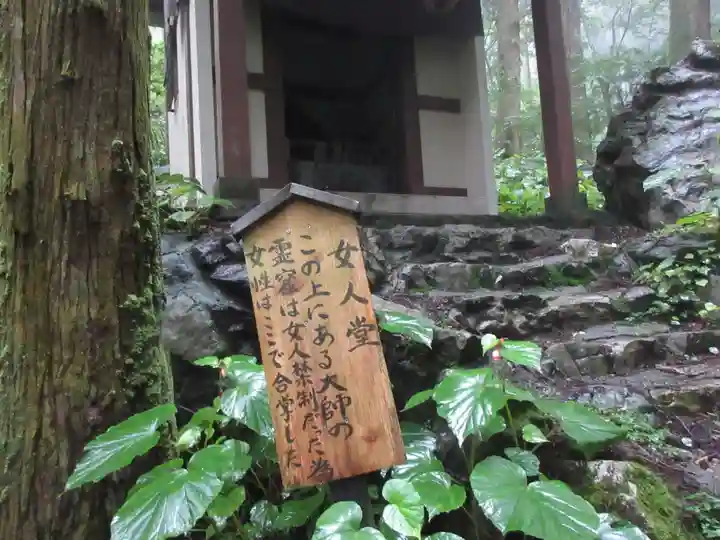 女人堂
この上にある大師の
霊窟は女人禁制だった為
女性はここで合掌した